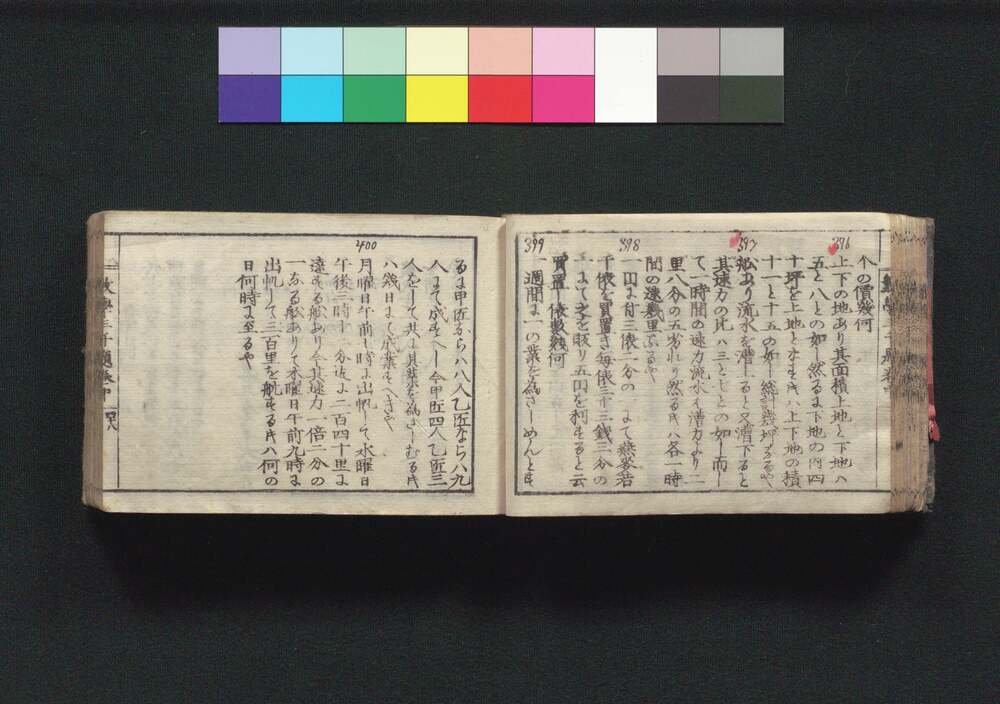 个の價幾何
396
上下の地あり其面積上地と下地ハ
五と八との如し然るに下地の内四
十坪を上地となすときハ上下地の積
十一と十五の如し総計幾坪なるや
397
舩あり流水を漕上ると又漕下ると
其速力の比ハ三と七との如し而し
て一時間の速力流水ハ漕力より二
里八分の五劣れり然るときハ各一時
間の速幾里なるや
398
一円に付三俵二分の一にて
千俵を買置き毎俵三十三銭三分の
にて賣り五円を利すると云
買置し俵数幾何
399
一週間に一の業を為さしめんとす
るに甲匠ならハ八人乙匠ならハ九
人にて成すへし今甲匠四人乙匠三
人をして共に其業を為さしむるときハ
幾日にて成業すへきや
400
月曜日午前七時に出帆して水曜日
午後三時十分迄に二百四十里に
達する舩あり今其速力一倍二分の
一なる舩ありて木曜日午前九時に
出帆して三百里を航するときハ何の
日何時に至るや
數學三千題巻中